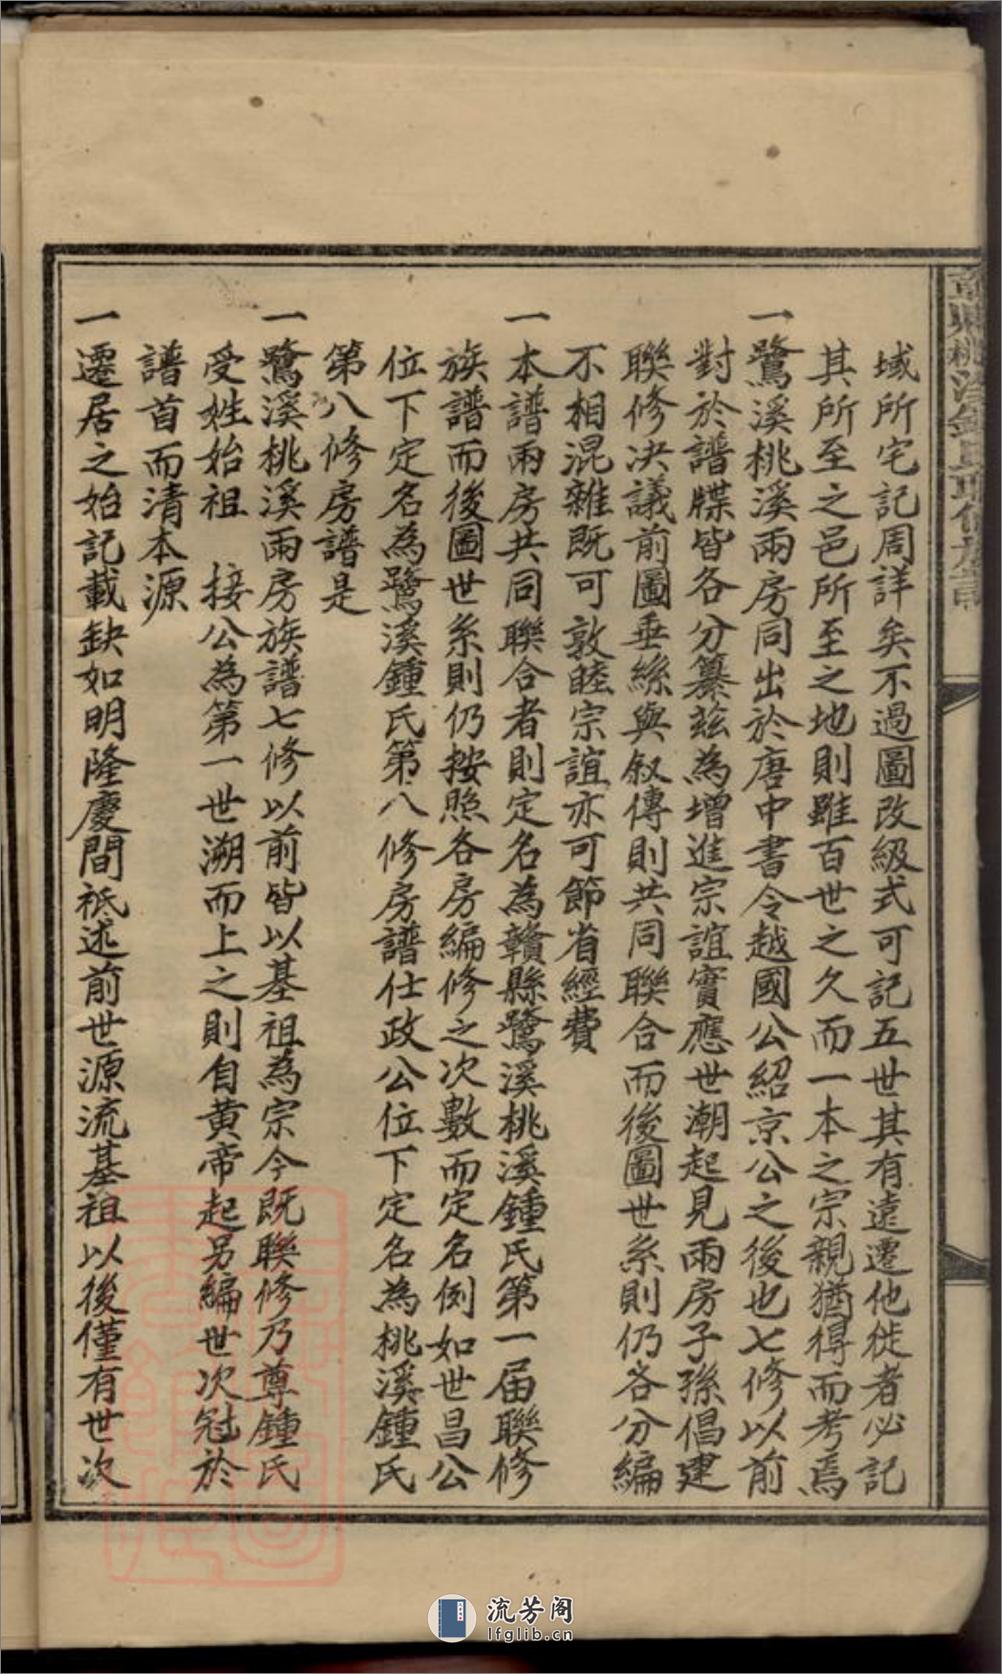 域所宅記周詳矣不過圖改級式可記五世其有遠遷他徙者必記
其所至之邑所至之地則雖百世之久而一本之宗親猶得而考焉
一鷺溪桃溪兩房同出於唐中書令越國公紹京公之後也七修以前
對於譜牒皆各分纂茲為增進宗誼實應世潮起見兩房子孫倡建
聯修決議前圖垂絲與叙傳則共同聯合而後圖世系則仍各分編
不相混雜既可敦睦宗誼亦可節省經費
一本譜兩房共同聯合者則定名為贛縣鷺溪桃溪鍾氏第一届聯修
族譜而後圖世系則仍按照各房編修之次數而定名例如世昌公
位下定名為鷺溪鍾氏第八修房譜仕政公位下定名為桃溪鍾氏
第八修房譜是
一鷺溪桃溪兩房族譜七修以前皆以基祖為宗今既聯修乃尊鍾氏
受姓始祖 接公為第一世溯而上之則自黄帝起另編世次冠於
譜首而清本源
一遷居之始記載缺如明隆慶間祗述前世源流基祖以後僅有世次
流芳阁
lfglib.cn